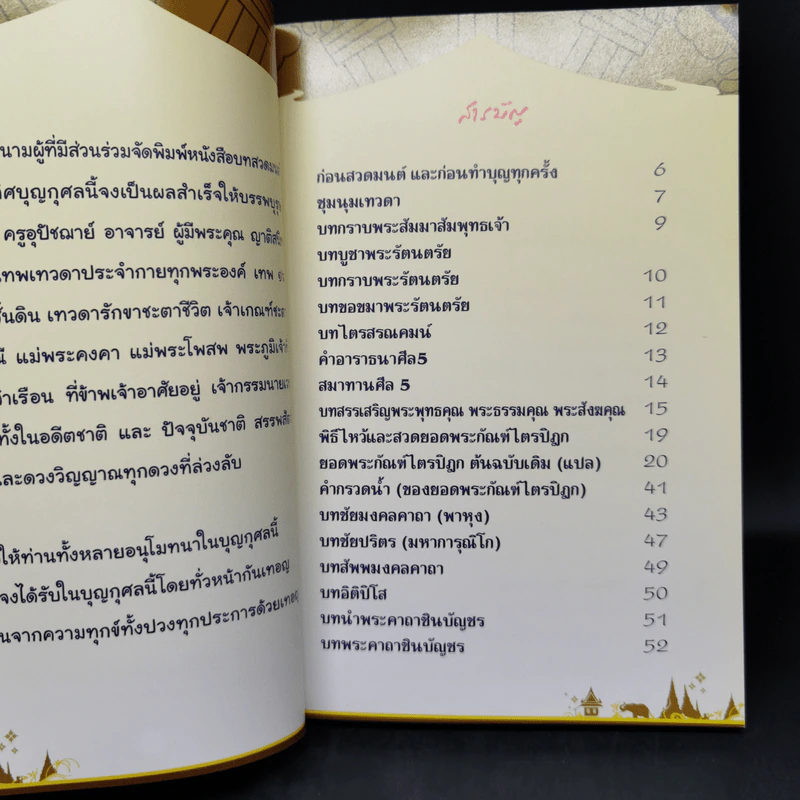 นามผู้ที่มีส่วนร่วมจัดพิมพ์หนังสือบทสวดมนต์
บุญกุศลนี้จงเป็นผลสำเร็จให้บรรพบุรุษ
ครูอุปัชฌาย์ อาจารย์ ผู้มีพระคุณ
เทพเทวดาประจำกายทุกพระองค์ เทพ
เทวดารักขาชะตาชีวิต
แม่พระคงคา แม่พระโพสพ
ที่ข้าพเจ้าอาศัยอยู่
ทั้งในอดีตชาติ และ ปัจจุบันชาติ
และดวงวิญญาณทุกดวงที่ล่วงลับ
ให้ท่านทั้งหลายอนุโมทนาในบุญกุศลนี้
จงได้รับในบุญกุศลนี้โดยทั่วหน้ากันเทอญ
จากความทุกข์ทั้งปวงทุกประการด้วยเทอญ
สารบัญ
ก่อนสวดมนต์ และก่อนทำบุญทุกครั้ง 6
ชุมนุมเทวดา 7
บทกราบพระสัมมาสัมพุทธเจ้า 9
บทบูชาพระรัตนตรัย
บทกราบพระรัตนตรัย 10
บทขอขมาพระรัตนตรัย 11
บทไตรสรณคมน์ 12
คำอาราธนาศีล5 13
สมาทานศีล 5 14
บทสรรเสริญพระพุทธคุณ พระธรรมคุณ พระสังฆคุณ 15
พิธีไหว้และสวดยอดพระกัณฑ์ไตรปิฎก 19
ยอดพระกัณฑ์ไตรปิฎก ต้นฉบับเดิม (แปล) 20
คำกรวดน้ำ (ของยอดพระกัณฑ์ไตรปิฎก) 41
บทชัยมงคลคาถา (พาหุง) 43
บทชัยปริตร (มหาการุณิโก) 47
บทสัพพมงคลคาถา 49
บทอิติปิโส 50
บทนำพระคาถาชินบัญชร 51
บทพระคาถาชินบัญชร 52